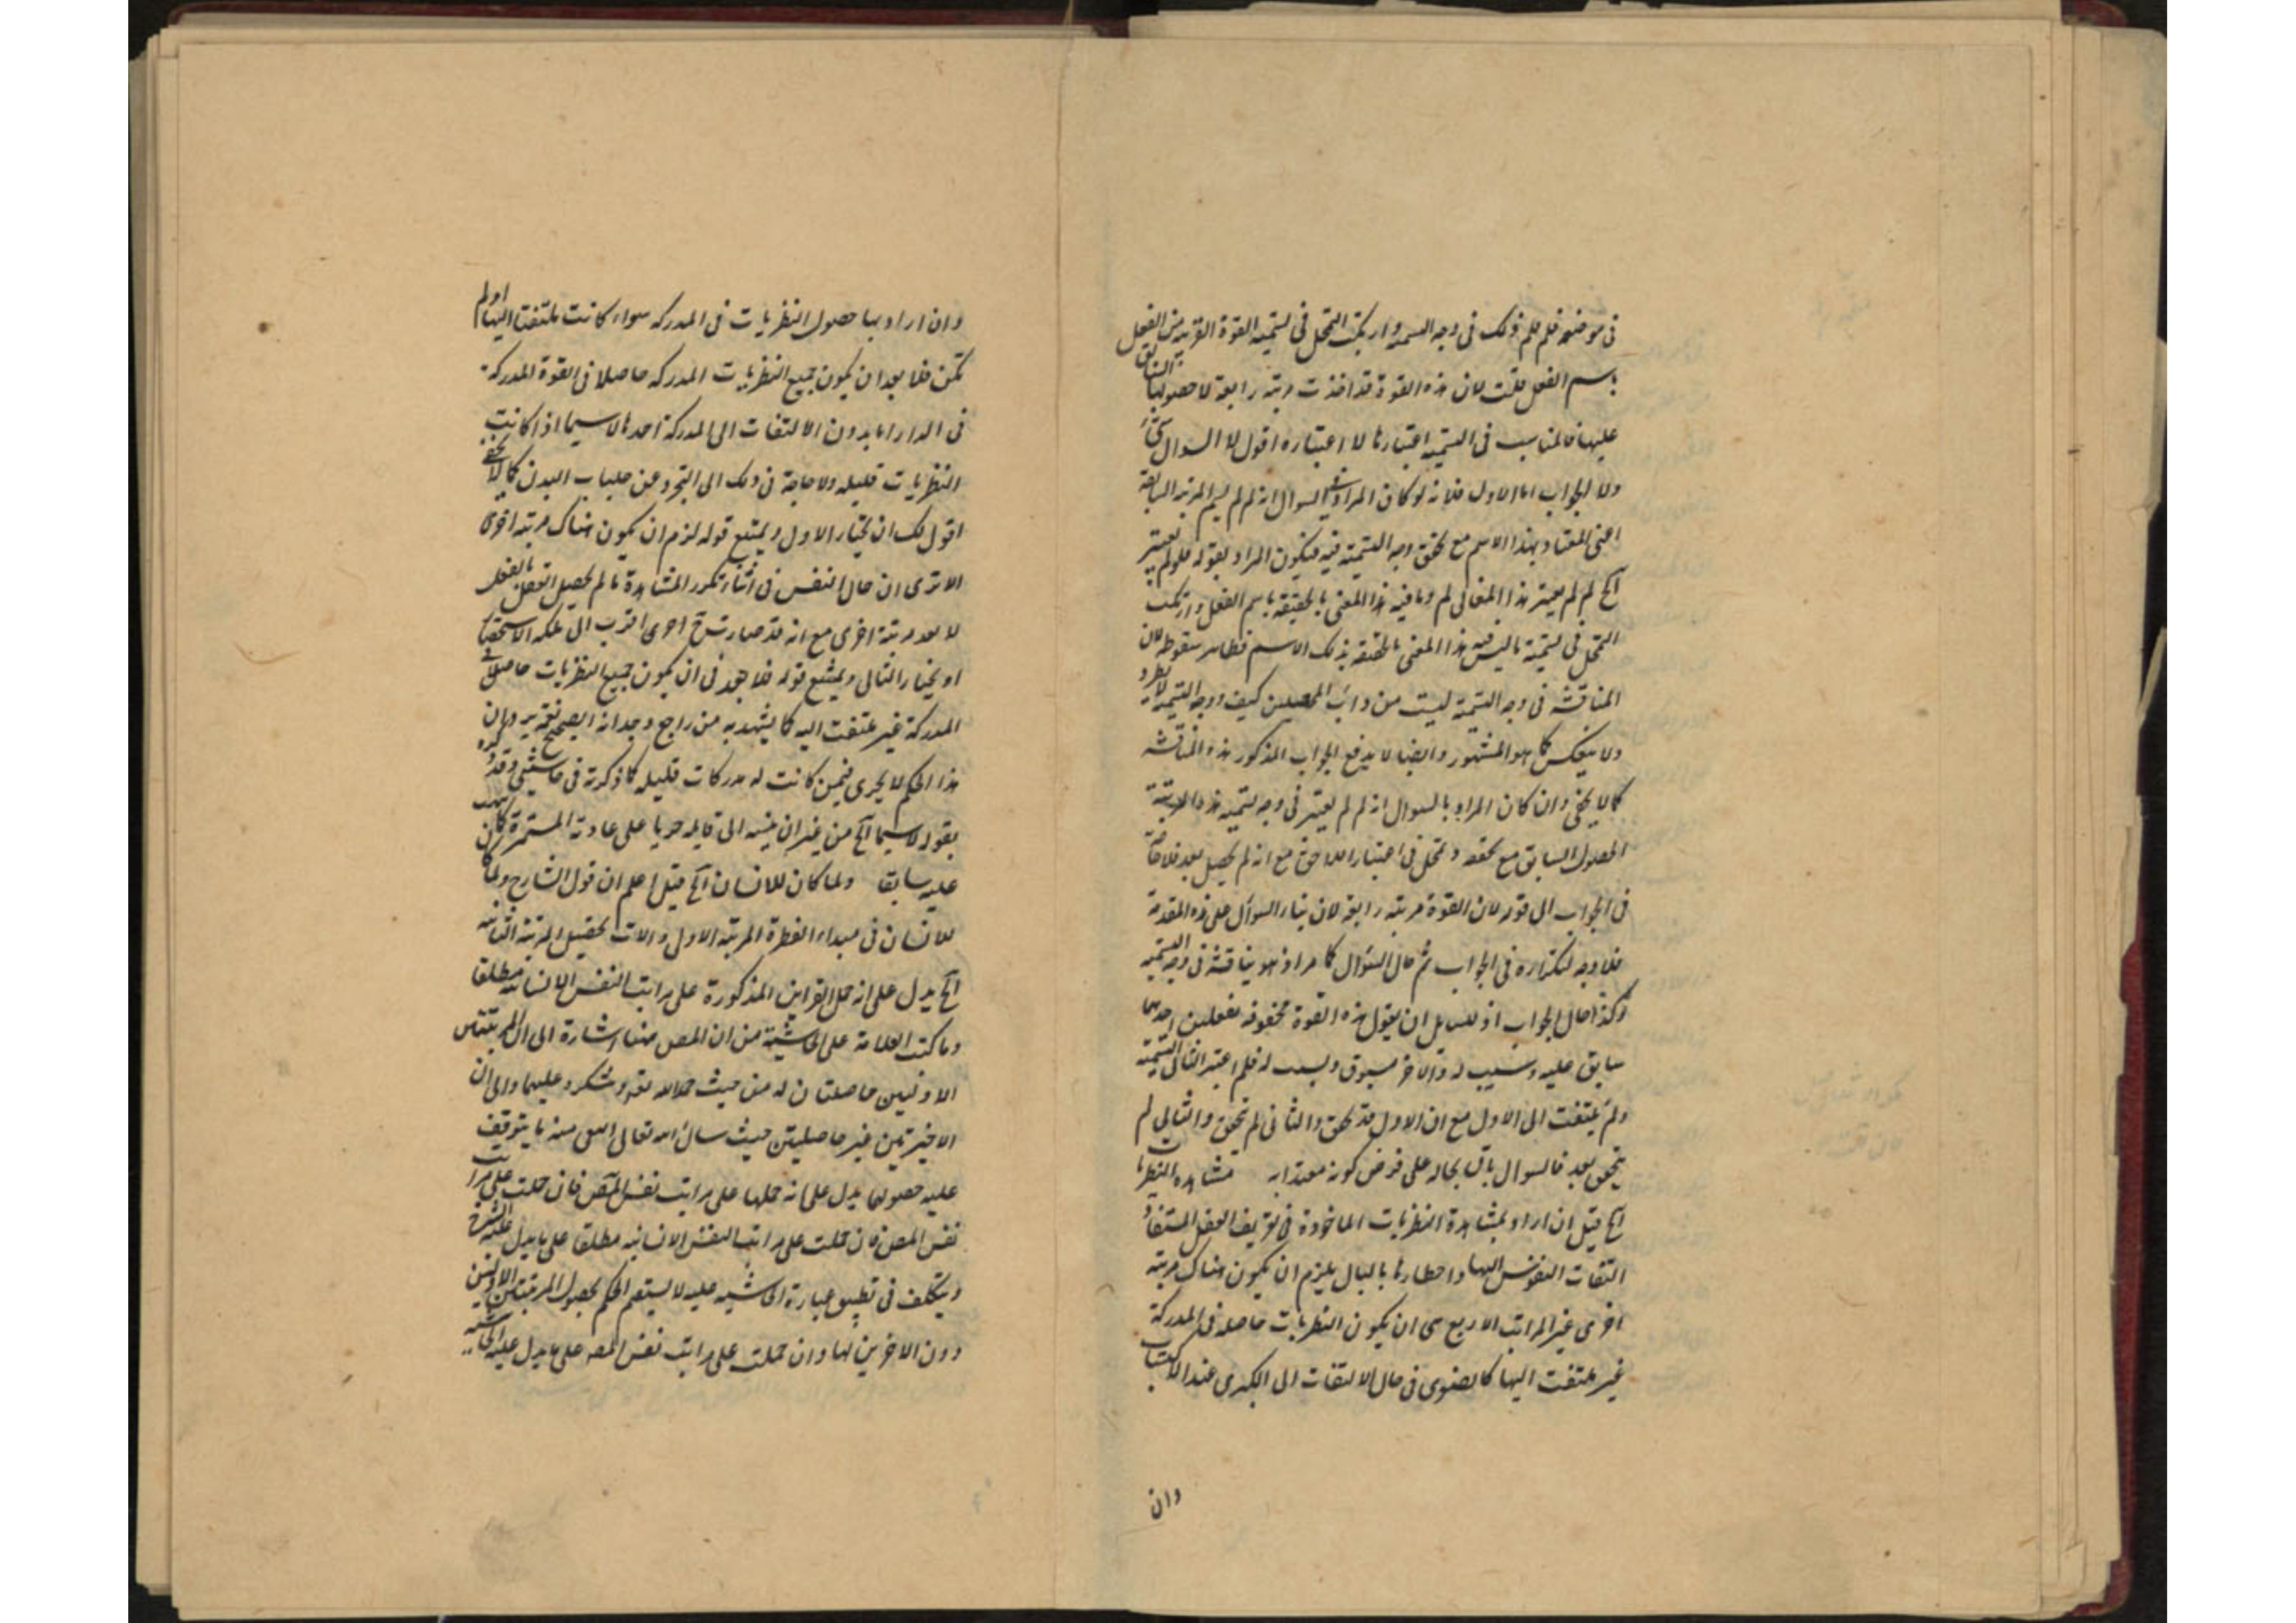 في موضعه فلم فلم ذلك في وجه التسمية وارتكب التمحل في تسمية القوة القريبة من الفعل
باسم الفعل قلت لان هذه القوة قد اخذت مرتبة رابعة لا حصولها السابق
عليها فالمناسب في التسمية اعتبارها لا اعتباره اقول لا السوال شئ
ولا الجواب اما الاول فلانه لو كان المراد من السوال انه لم لم يسم المرتبة السابقة
اعني المعتاد بهذا الاسم مع تحقق وجه التسمية فيه فيكون المراد بقوله فلم لم يعتبر
الخ لم لم يعتبر هذا المعنى لم وما فيه هذا المعنى بالحقيقة باسم الفعل وارتكب
التمحل في تسمية ما ليس فيه هذا المعنى بالحقيقة بذلك الاسم فظاهر سقوطه لان
المناقشة في وجه التسمية ليست من داب المحصلين كيف ووجه التسمية لا يطرد
ولا ينعكس كما هو المشهور وايضا لا يدفع الجواب المذكور هذه المناقشة
كما لا يخفى وان كان المراد بالسوال انه لم لم يعتبر في وجه تسمية هذه المرتبة
الحصول السابق مع تحققه وتمحل في اعتبار اللاحق مع انه لم يحصل بعد فلا حاجة
في الجواب الى قوله لان القوة مرتبة رابعة لان بناء السوال على هذه المقدمة
فلا وجه لتكراره في الجواب ثم حال السوال كما مر اذ هو مناقشة في وجه التسمية
وكذا حال الجواب اذ للسايل ان يقول هذه القوة محفوفة بفعلين احدهما
سابق عليه وسبب له والاخر مسبوق ومسبب له فلم اعتبر الثاني في التسمية
ولم يلتفت الى الاول مع ان الاول قد تحقق والثاني لم يتحقق والثاني لم
يتحقق بعد فالسوال باق بحاله على فرض كونه معتدا به مشاهدة النظريات
الخ قيل ان اراد بمشاهدة النظريات الماخوذة في تعريف العقل المستفاد
التفات النفوس اليها واحضارها بالبال يلزم ان يكون هناك مرتبة
اخرى غير المراتب الاربع هى ان يكون النظريات حاصلة في المدركة
غير ملتفت اليها كالصغرى في حال الالتفات الى الكبرى عند الاكتساب
وان
وان اراد بها حصول النظريات في المدركة سواء كانت ملتفتا اليها او لم
تكن فلا بعد ان يكون جميع النظريات المدركة حاصلا في القوة المدركة
في الدار اما بدون الالتفات الى المدركة احدها لا سيما اذا كانت
النظريات قليلة ولا حاجة في ذلك الى التجرد عن جلباب البدن كما لا يخفى
اقول لك ان تختار الاول ويمنع قوله لزم ان يكون هناك مرتبة اخرى
الا ترى ان حال النفس في اثناء تكرر المشاهدة ما لم يحصل العقل بالفعل
لا يعد مرتبة اخرى مع انه قد صارت اخرى اقرب الى ملكة الاستحضار
او يختار الثاني ويمنع قوله فلا بعد في ان يكون جميع النظريات حاصلا في
المدركة غير ملتفت اليه كما يشهد به من راجع وجدانه الصحيح نعم يرد ان
هذا الحكم لا يجري فيمن كانت له مدركات قليلة كما ذكرته في حاشيتي وقد ذكره
بقوله لا سيما الخ من غير ان ينسبه الى قايله جريا على عادته المستمرة كما
عليه سابقا ولما كان للانسان الخ قيل اعلم ان قول الشارح ولما كان
للانسان في مبداء الفطرة المرتبة الاولى والات تحصيل المرتبة الثانية
الخ يدل على انه حمل القراين المذكورة على مراتب النفس الانسانية مطلقا
وما كتب العلامة على الحاشية من ان المص ههنا اشارة الى ان المرتبتين
الاوليين حاصلتان له من حيث حمد الله تعالى وشكره عليهما والى ان
الاخيرتين غير حاصلتين حيث سال الله تعالى اللتي منه ما يتوقف
عليه حصولهما يدل على انه حملها على مراتب نفس المص فان حملت على مراتب
نفس المص فان حملت على مراتب النفس الانسانية مطلقا على ما يدل عليه الشرح
ويتكلف في تطبيق عبارة الحاشية عليه لا يستقيم الحكم بحصول المرتبتين الاوليين
دون الاخريين لها وان حملت على مراتب نفس المص على ما يدل عليه الحاشية